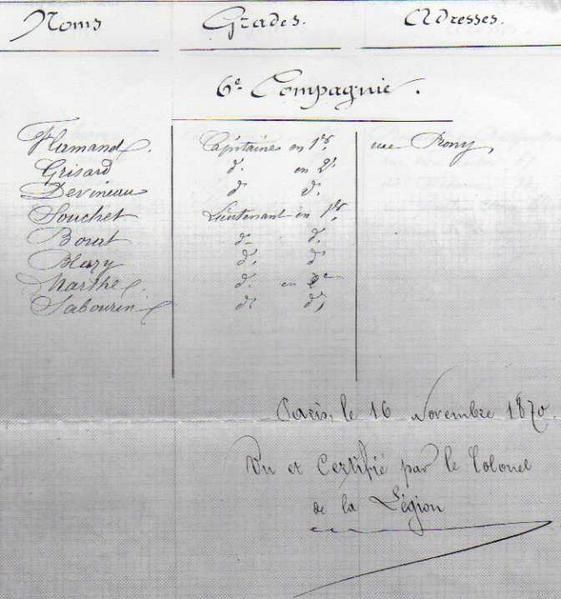 Noms Grades. Adresses.
6e Compagnie.
Flamand. Capitaine en 1er. rue Prony,
Grisard d. en 2d.
Devineau d d.
Souchet Lieutenant en 1er.
Bourt d. d.
Blazy d. d
Marthe. d. en 2e
Sabourin d. d.
Paris, le 16 Novembre 1870.
Vu et Certifié par le Colonel
de la Légion